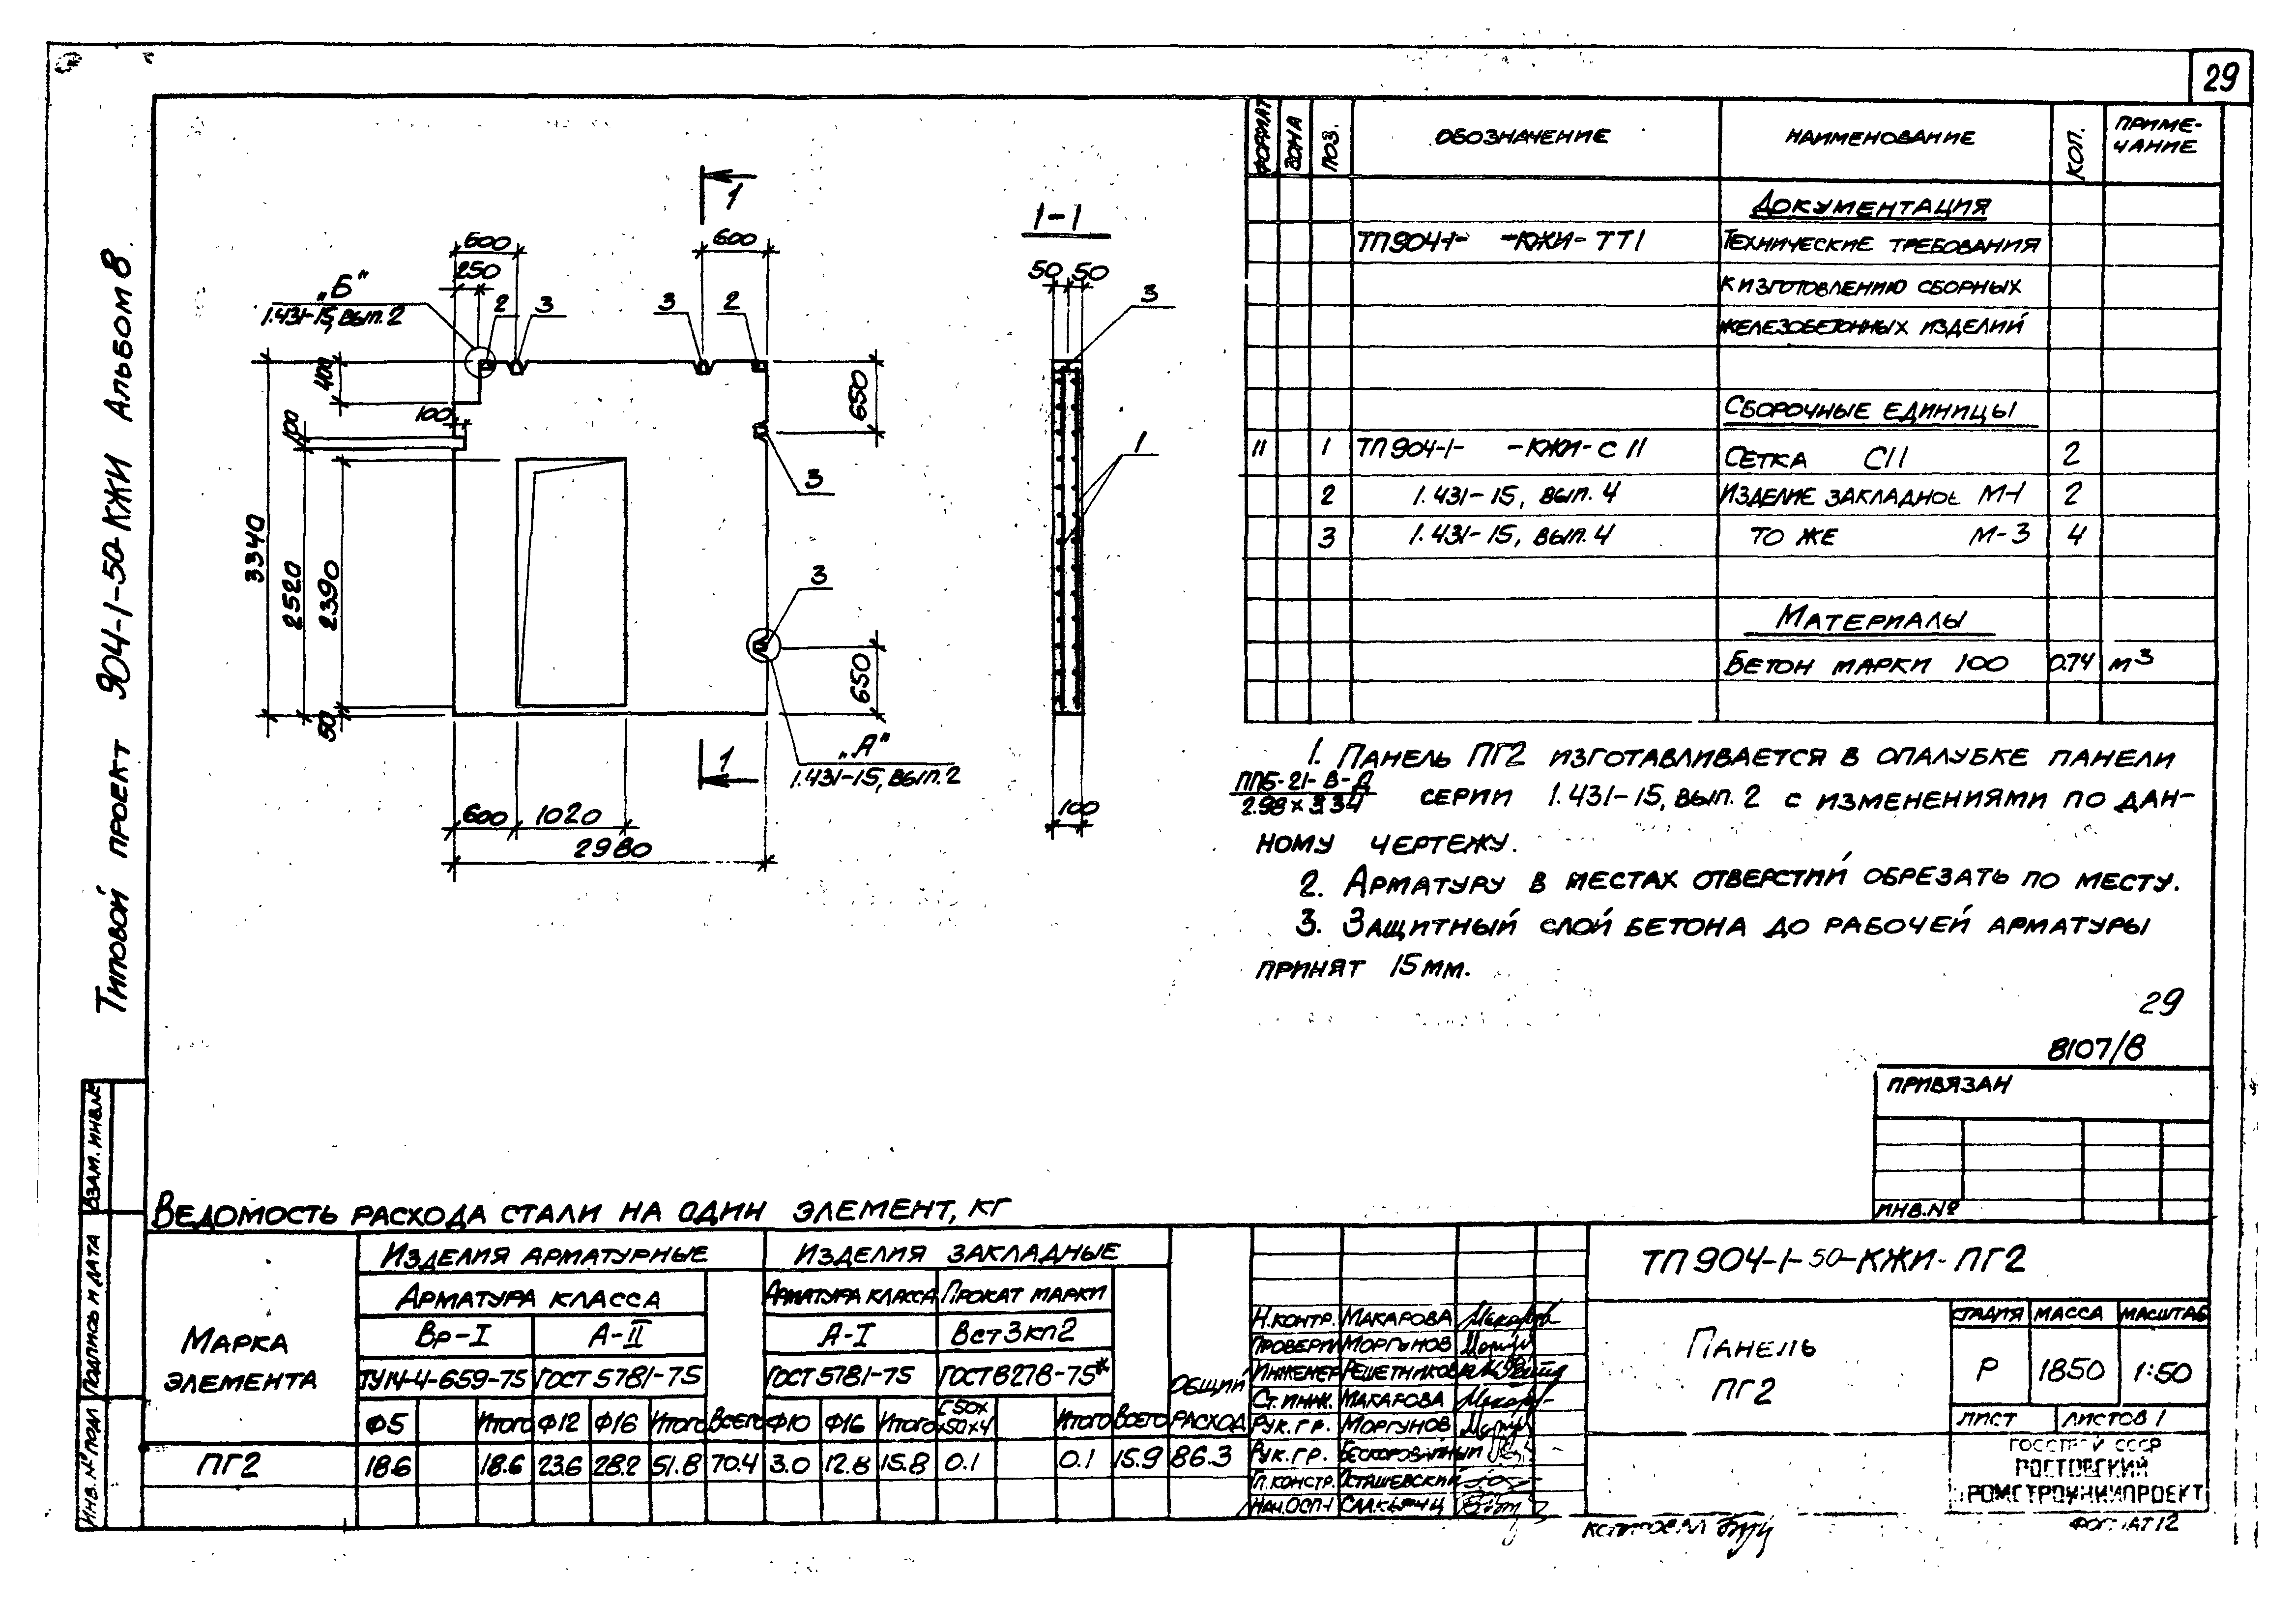 29
Типовой проект 904-1-50-КЖИ Альбом 8.
1
1-1
600
600
250
50 50
„Б"
1.431-15, вып. 2
2
3
3
2
3
400
100
100
650
3
1
3340
2520
2390
50
3
650
„А"
1.431-15, вып. 2
1
600
1020
2980
100
Формат
Зона
Поз.
Обозначение
Наименование
Кол.
Приме-
чание
Документация
ТП904-1- -КЖИ-ТТ1 Технические требования
к изготовлению сборных
железобетонных изделий
Сборочные единицы
11 1 ТП904-1- -КЖИ-С11 Сетка С11 2
2 1.431-15, вып. 4 Изделие закладное М-1 2
3 1.431-15, вып. 4 То же М-3 4
Материалы
Бетон марки 100 0.74 м3
1. Панель ПГ2 изготавливается в опалубке панели
ПГБ-21-В-Д
2.98 х 3.34
серии 1.431-15, вып. 2 с изменениями по дан-
ному чертежу.
2. Арматуру в местах отверстий обрезать по месту.
3. Защитный слой бетона до рабочей арматуры
принят 15мм.
29
8107/8
Привязан
Инв.№
Взам. инв.№
Подпись и дата
Инв. № подл
Ведомость расхода стали на один элемент, кг
Марка
элемента
Изделия арматурные
Изделия закладные
Общий
расход
Арматура класса
Арматура класса
Прокат марки
Вр-I
А-II
А-I
Вст3кп2
ТУ14-4-659-75
ГОСТ 5781-75
ГОСТ 5781-75
ГОСТ8278-75*
Ф5 Итого Ф12 Ф16 Итого Всего Ф10 Ф16 Итого
50х
х50х4
Итого Всего
ПГ2 18.6 18.6 23.6 28.2 51.8 70.4 3.0 12.8 15.8 0.1 0.1 15.9 86.3
Н.контр. Макарова
Проверил Моргунов
Инженер Решетникова
Ст.инж. Макарова
Рук.гр. Моргунов
Рук.гр. Бескоровайный
Гл.констр. Осташевский
Нач.ОСП-1
ТП904-1-50-КЖИ-ПГ2
Панель
ПГ2
Стадия Масса Масштаб
Р 1850 1:50
Лист Листов 1
Госстрой СССР
Ростовский
Промстройниипроект
Копировал
Формат 12